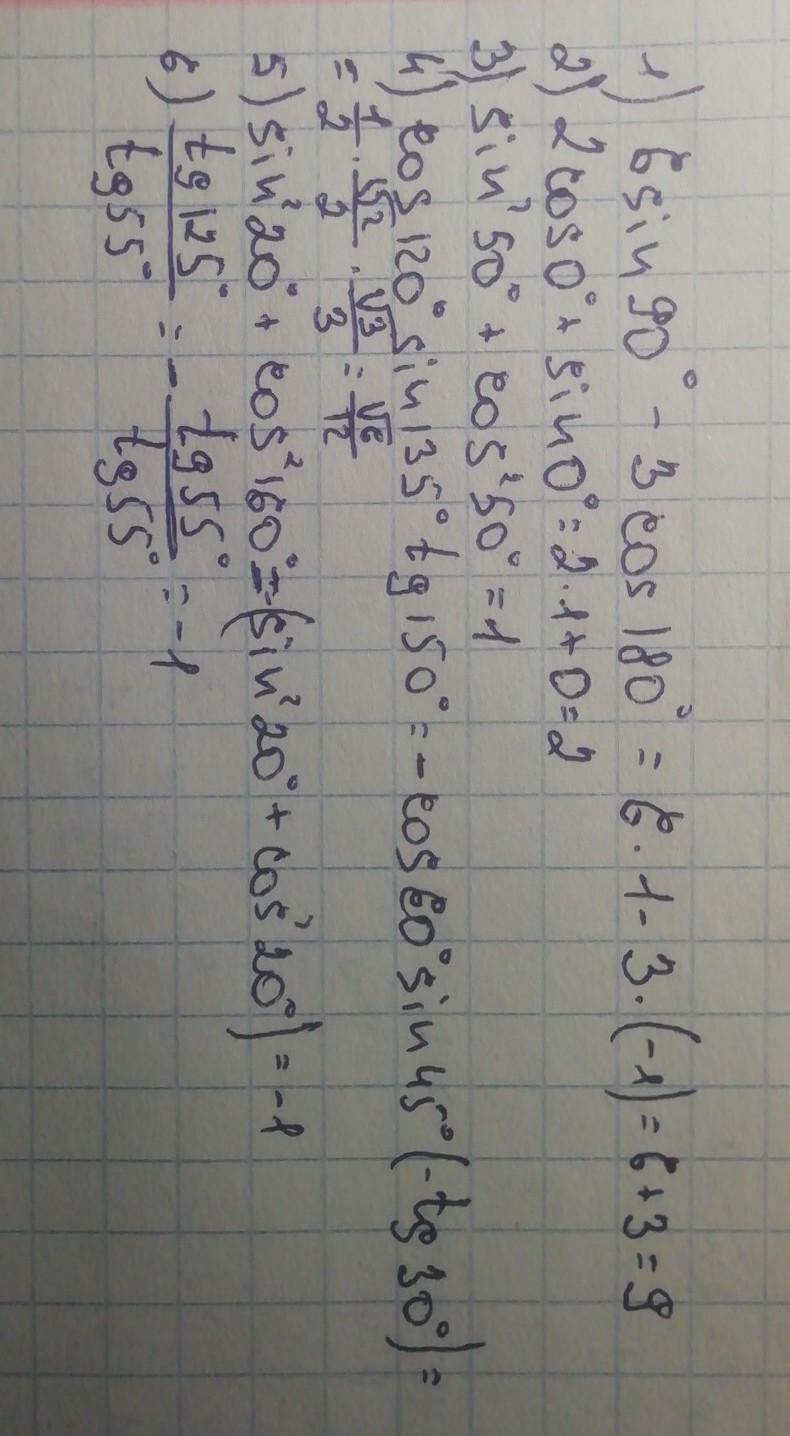 1) 6 sin 90° - 3 cos 180° = 6 · 1 - 3 · (-1) = 6 + 3 = 9
2) 2 cos 0° + sin 0° = 2 · 1 + 0 = 2
3) sin² 50° + cos² 50° = 1
4) cos 120° sin 135° tg 150° = - cos 60° sin 45° (- tg 30°) =
= 1/2 · √2/2 · √3/3 = √6/12
5) sin² 20° + cos² 160° = -(sin² 20° + cos² 20°) = -1
6) tg 125°/tg 55° = - tg 55°/tg 55° = -1